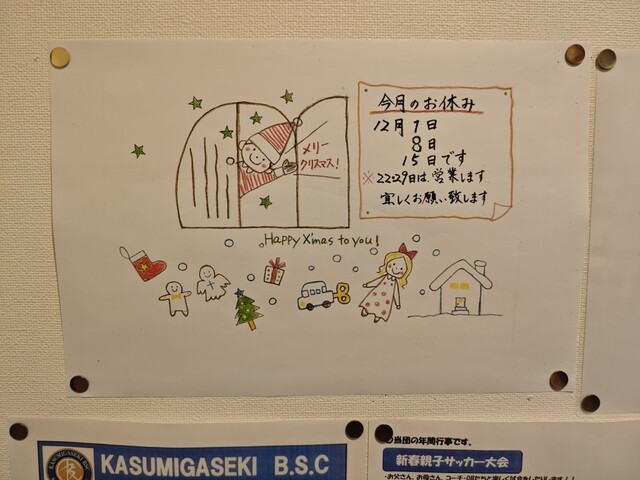 メリー
クリスマス!
今月のお休み
12月1日
8日
15日です
※22.29日は、営業します
宜しくお願い致します
Happy X'mas to you!
KASUMIGASEKI B.S.C
当団の年間行事です。
新春親子サッカー大会